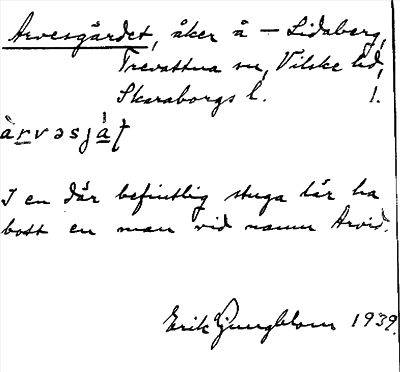 Arvesgärdet, åker å – Lidaberg,
Trevattna sn, Vilske hd,
Skaraborgs l. 1.
àrvəsjáṭ
I en där befintlig stuga lär ha
bott en man vid namn Arvid.
Erik Ljungblom 1939.